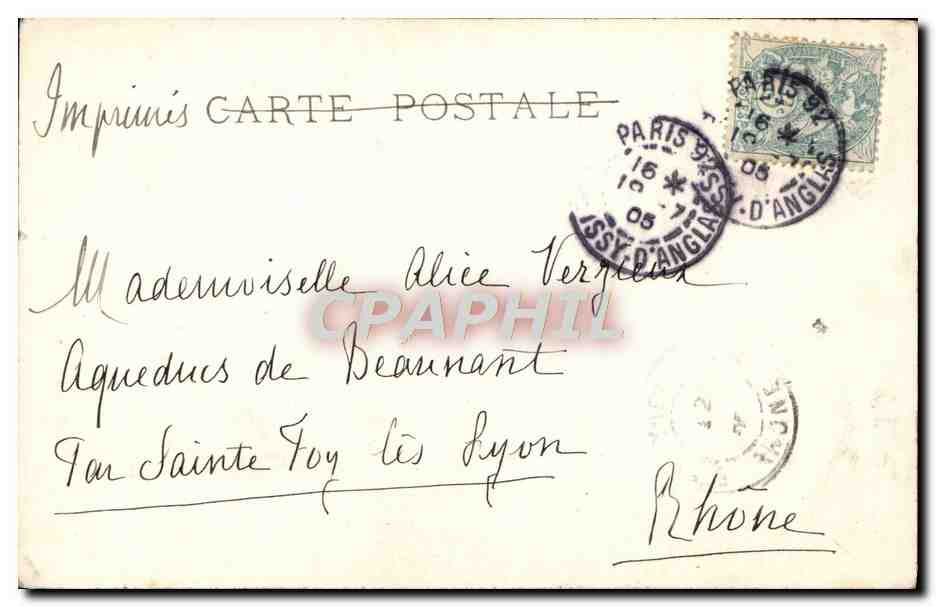 Imprimés CARTE POSTALE
PARIS 92
16 *
19 7
05
BOISSY-D'ANGLAS
PARIS 92
16 *
05
ISSY-D'ANGLAS
Mademoiselle Alice Vergieux
CPAPHIL
Aqueducs de Beaunant
Par Sainte Foy lès Lyon
12
RHONE
Rhône